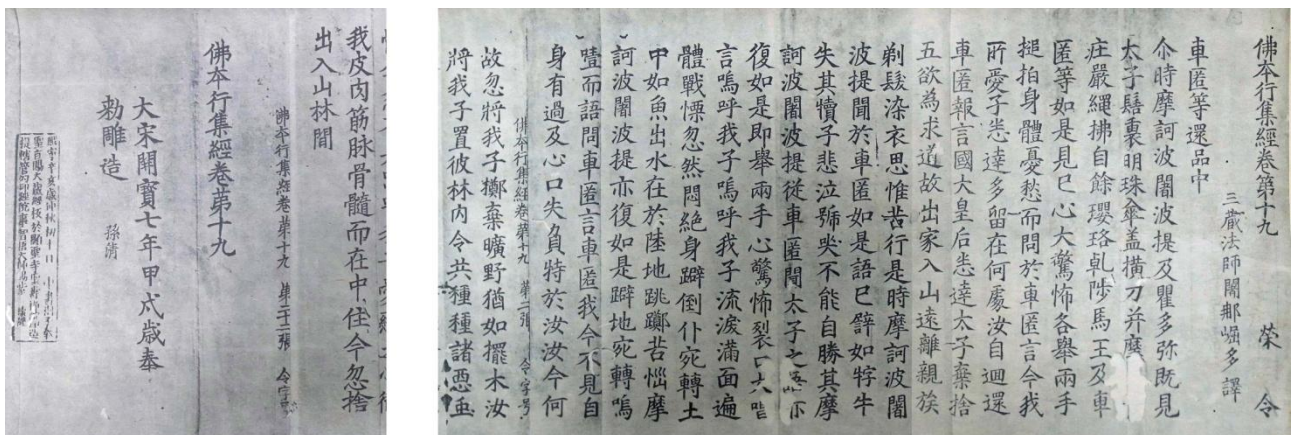 佛本行集經卷第十九 榮 令
三藏法師闍那崛多譯
車匿等還品中
尒時摩訶波闍波提及瞿多弥既見
太子髻裏明珠傘盖橫刀并摩
庄嚴繩拂自餘瓔珞乹陟馬王及車
匿等如是見已心大驚怖各舉兩手
搥拍身體憂愁而問於車匿言今我
所愛子悉達多留在何處汝自迴還
車匿報言國大皇后悉達太子棄捨
五欲為求道故出家入山遠離親族
剃髮染衣思惟苦行是時摩訶波闍
波提聞於車匿如是語已辟如牸牛
失其犢子悲泣號哭不能自勝其摩
訶波闍波提從車匿聞太子之
復如是即舉兩手心驚怖裂
言嗚呼我子嗚呼我子流淚滿面遍
體戰慄忽然悶絕身躃倒仆宛轉土
中如魚出水在於陸地跳躑苦惱摩
訶波闍波提亦復如是躃地宛轉嗚
噎而語問車匿言車匿我今不見自
身有過及心口失負特於汝汝今何
佛本行集經卷第十九 第二張 令字号
故忽將我子擲棄曠野猶如擺木汝
將我子置彼林内令共種種諸惡䖝
我皮肉筋脉骨髓而在中住今忽捨
佛本行集經卷第十九 第二十二張 令字号
出入山林間
佛本行集經卷第十九
大宋開寶七年甲戌歲奉
勑雕造 孫清
熙寧辛亥歲仲秋初十日 中書劄子奉